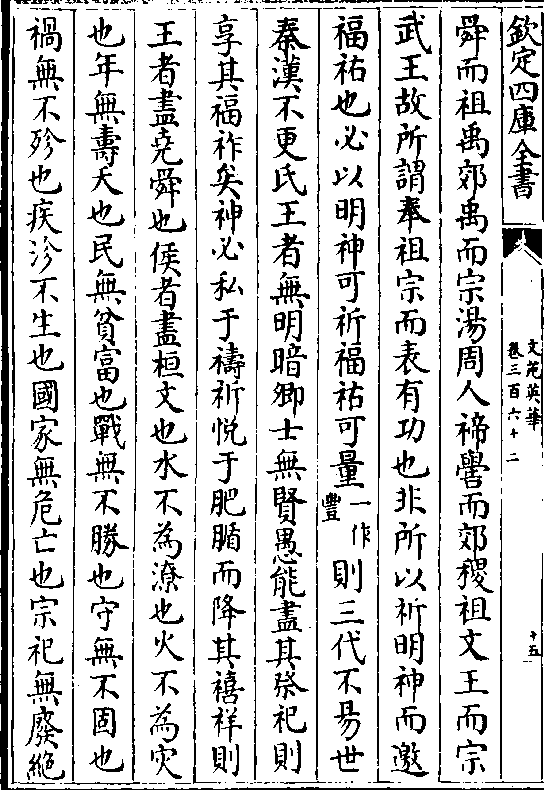 欽定四庫全書
文苑英華
卷三百六十二
十五
舜而祖禹郊禹而宗湯周人禘嚳而郊稷祖文王而宗
武王故所謂奉祖宗而表有功也非所以祈明神而邀
福祐也必以明神可祈福祐可量一作豐則三代不易世
秦漢不更氏王者無明暗卿士無賢愚能盡其祭祀則
享其福祚矣神必私于禱祈悅于肥腯而降其禧祥則
王者盡堯舜也侯者盡桓文也水不為潦也火不為灾
也年無壽夭也民無貧富也戰無不勝也守無不固也
禍無不殄也疾沴不生也國家無危亡也宗祀無廢絶